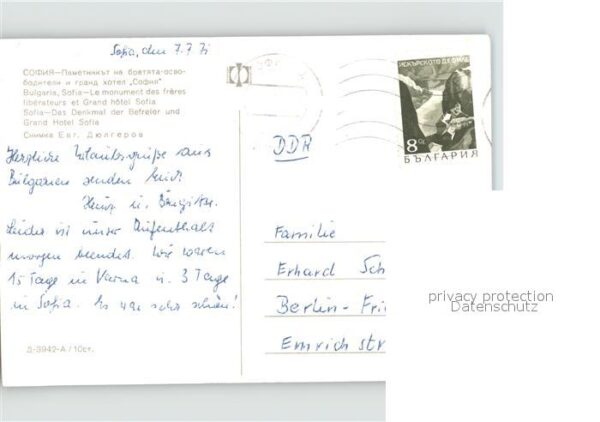 Sofia, den 7.7.71
СОФИЯ—Паметникът на братята-осво-
бодители и гранд хотел „София"
Bulgaria, Sofia—Le monument des frères
libérateurs et Grand hôtel Sofia
Sofia—Das Denkmal der Befreier und
Grand Hotel Sofia
Снимка Евг. Дюлгеров
Herzliche Urlaubsgrüße aus
Bulgarien senden Euch
Heinz u. Brigitte.
Leider ist unser Aufenthalt
morgen beendet. Wir waren
15 Tage in Varna u. 3 Tage
in Sofia. Es war sehr schön!
Д-3942-А / 10ст.
ИСКЪРСКОТО ДЕФИЛЕ
8 ст.
БЪЛГАРИЯ
DDR
Familie
Erhard Sch
Berlin-Fri
Emrichstr
privacy protection
Datenschutz